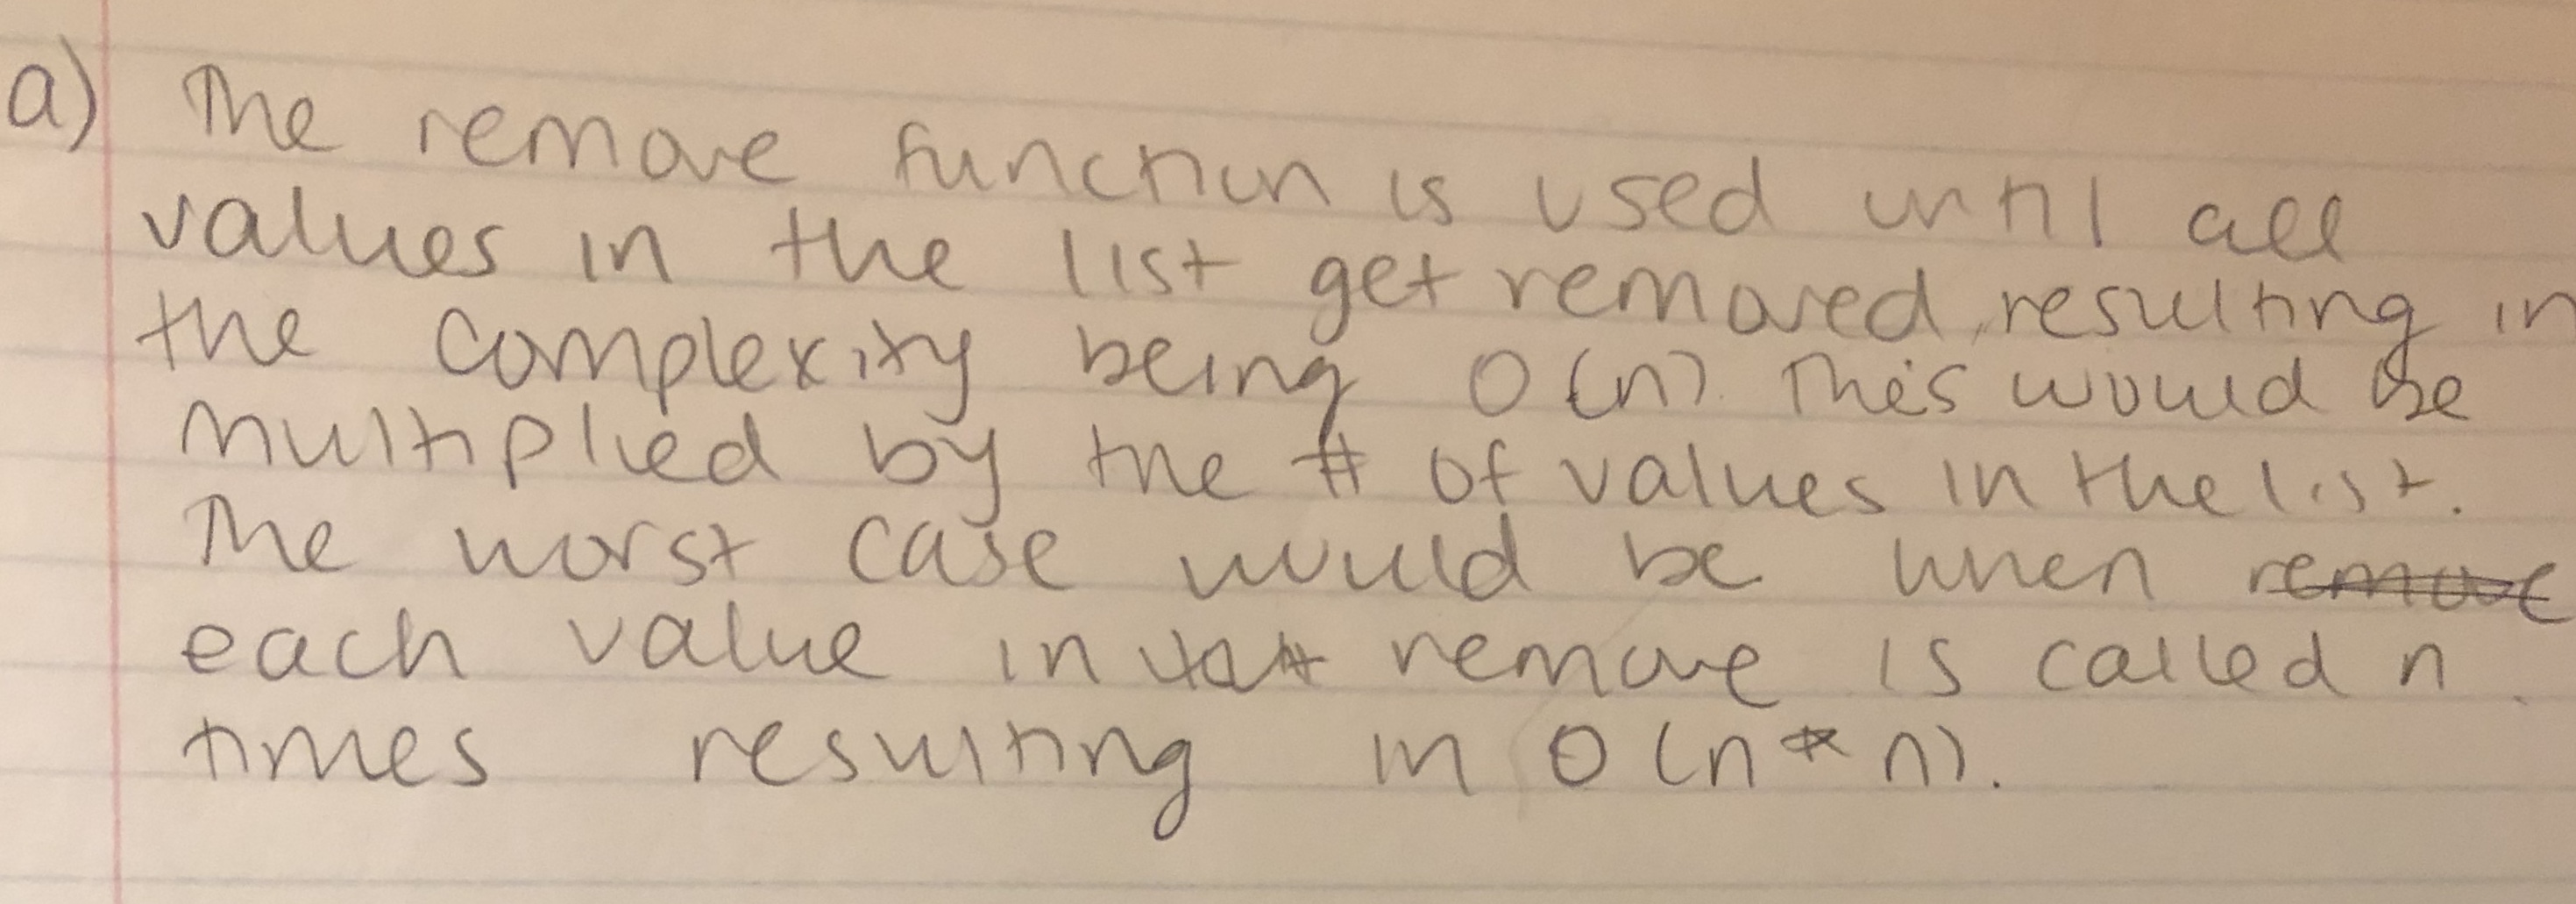 a) The remove function is used until all
values in the list get removed, resulting in
the complexity being O(n). This would be
multiplied by the # of values in the list.
The worst case would be when remove
each value in remove is called n
times resulting in O(n*n).